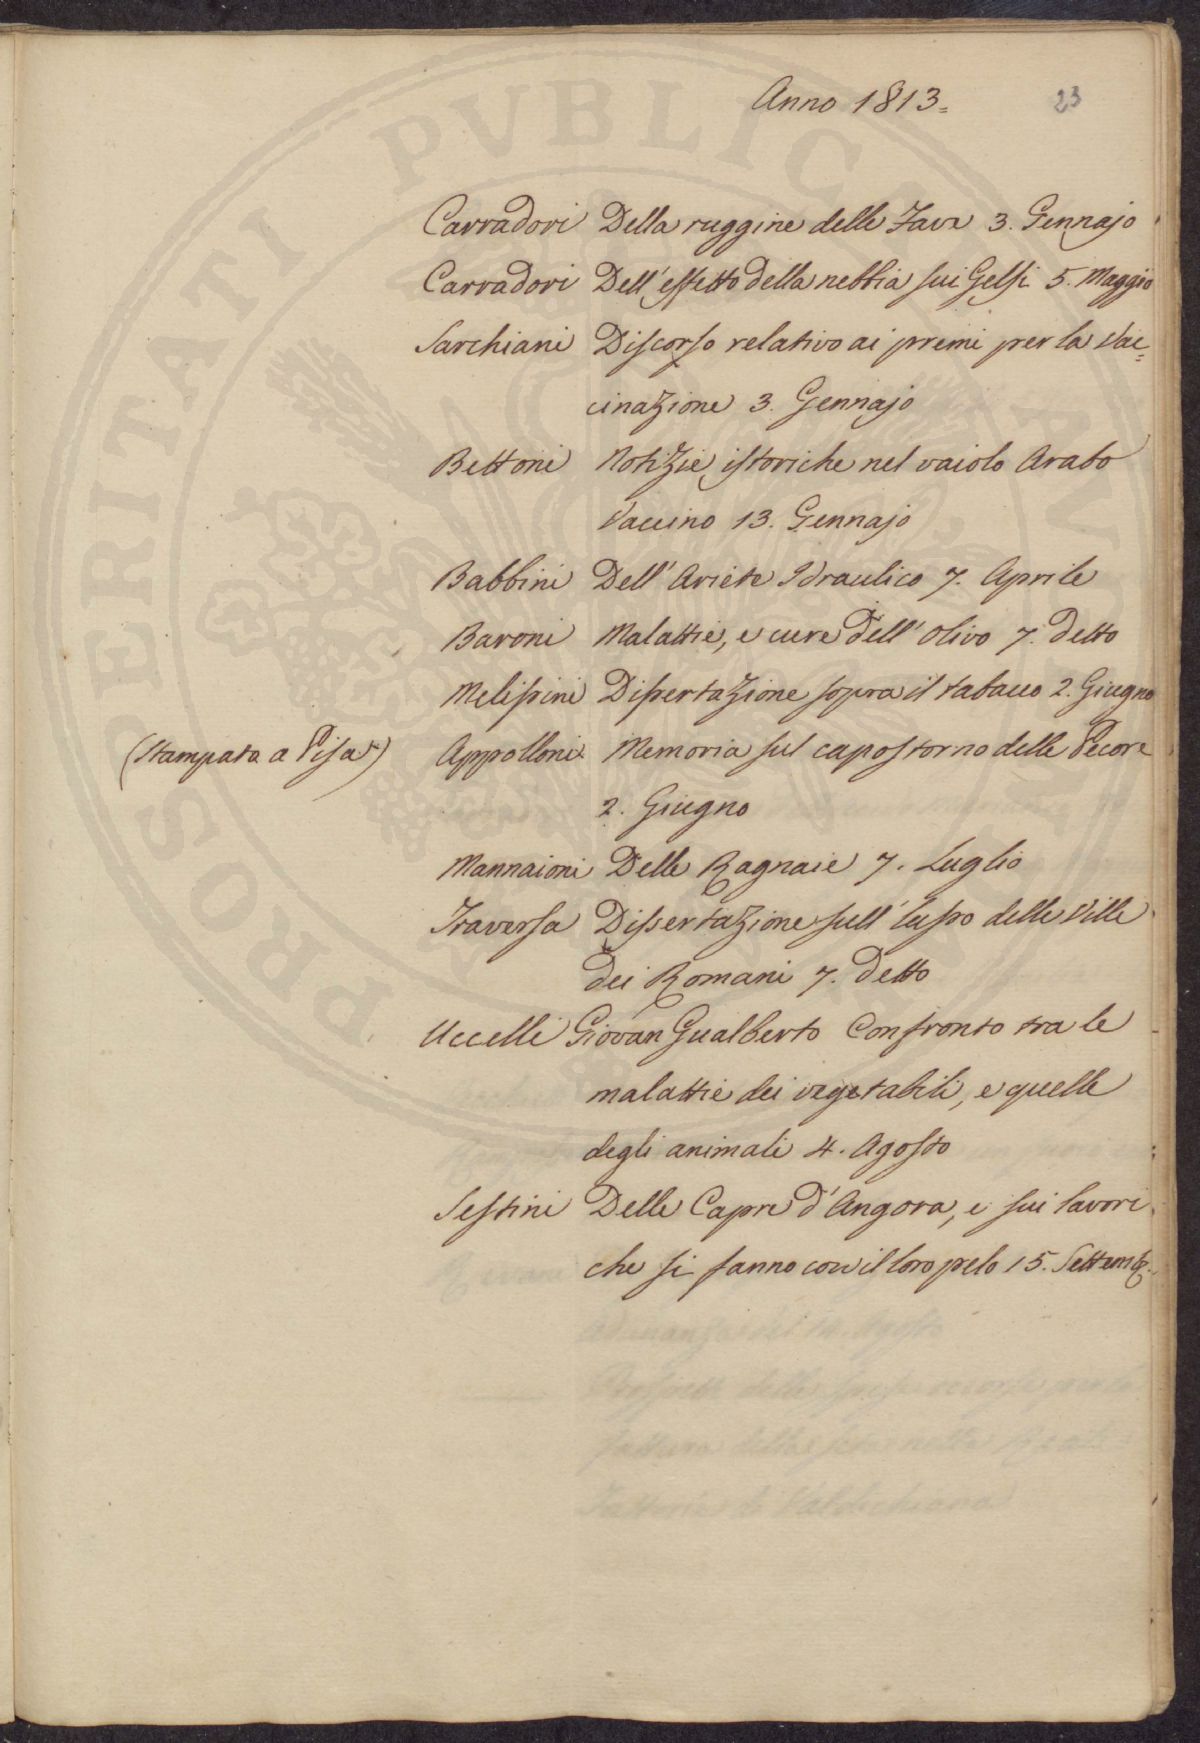 Anno 1813. 23
Carradori Della ruggine delle Fave 3. Gennajo
Carradori Dell'effetto della nebbia sui Gelsi 5. Maggio
Sarchiani Discorso relativo ai premi per la Vac=
cinazione 3. Gennajo
Bettoni Notizie istoriche nel vaiolo Arabo
Vaccino 13. Gennajo
Babbini Dell'Ariete Idraulico 7. Aprile
Baroni Malattie, e cure dell'Olivo 7. detto
Melissini Dissertazione sopra il tabacco 2. Giugno
(Stampata a Pisa) Appolloni Memoria sul capostorno delle Pecore
2. Giugno
Mannaioni Delle Ragnaie 7. Luglio
Traversa Dissertazione sull'lusso delle Ville
dei Romani 7. detto
Uccelli Giovan Gualberto Confronto tra le
malattie dei vegetabili, e quelle
degli animali 4. Agosto
Sestini Delle Capre d'Angora, e sui lavori
che si fanno con il loro pelo 15. Settemb.
PROSPERITATI PVBLICAE